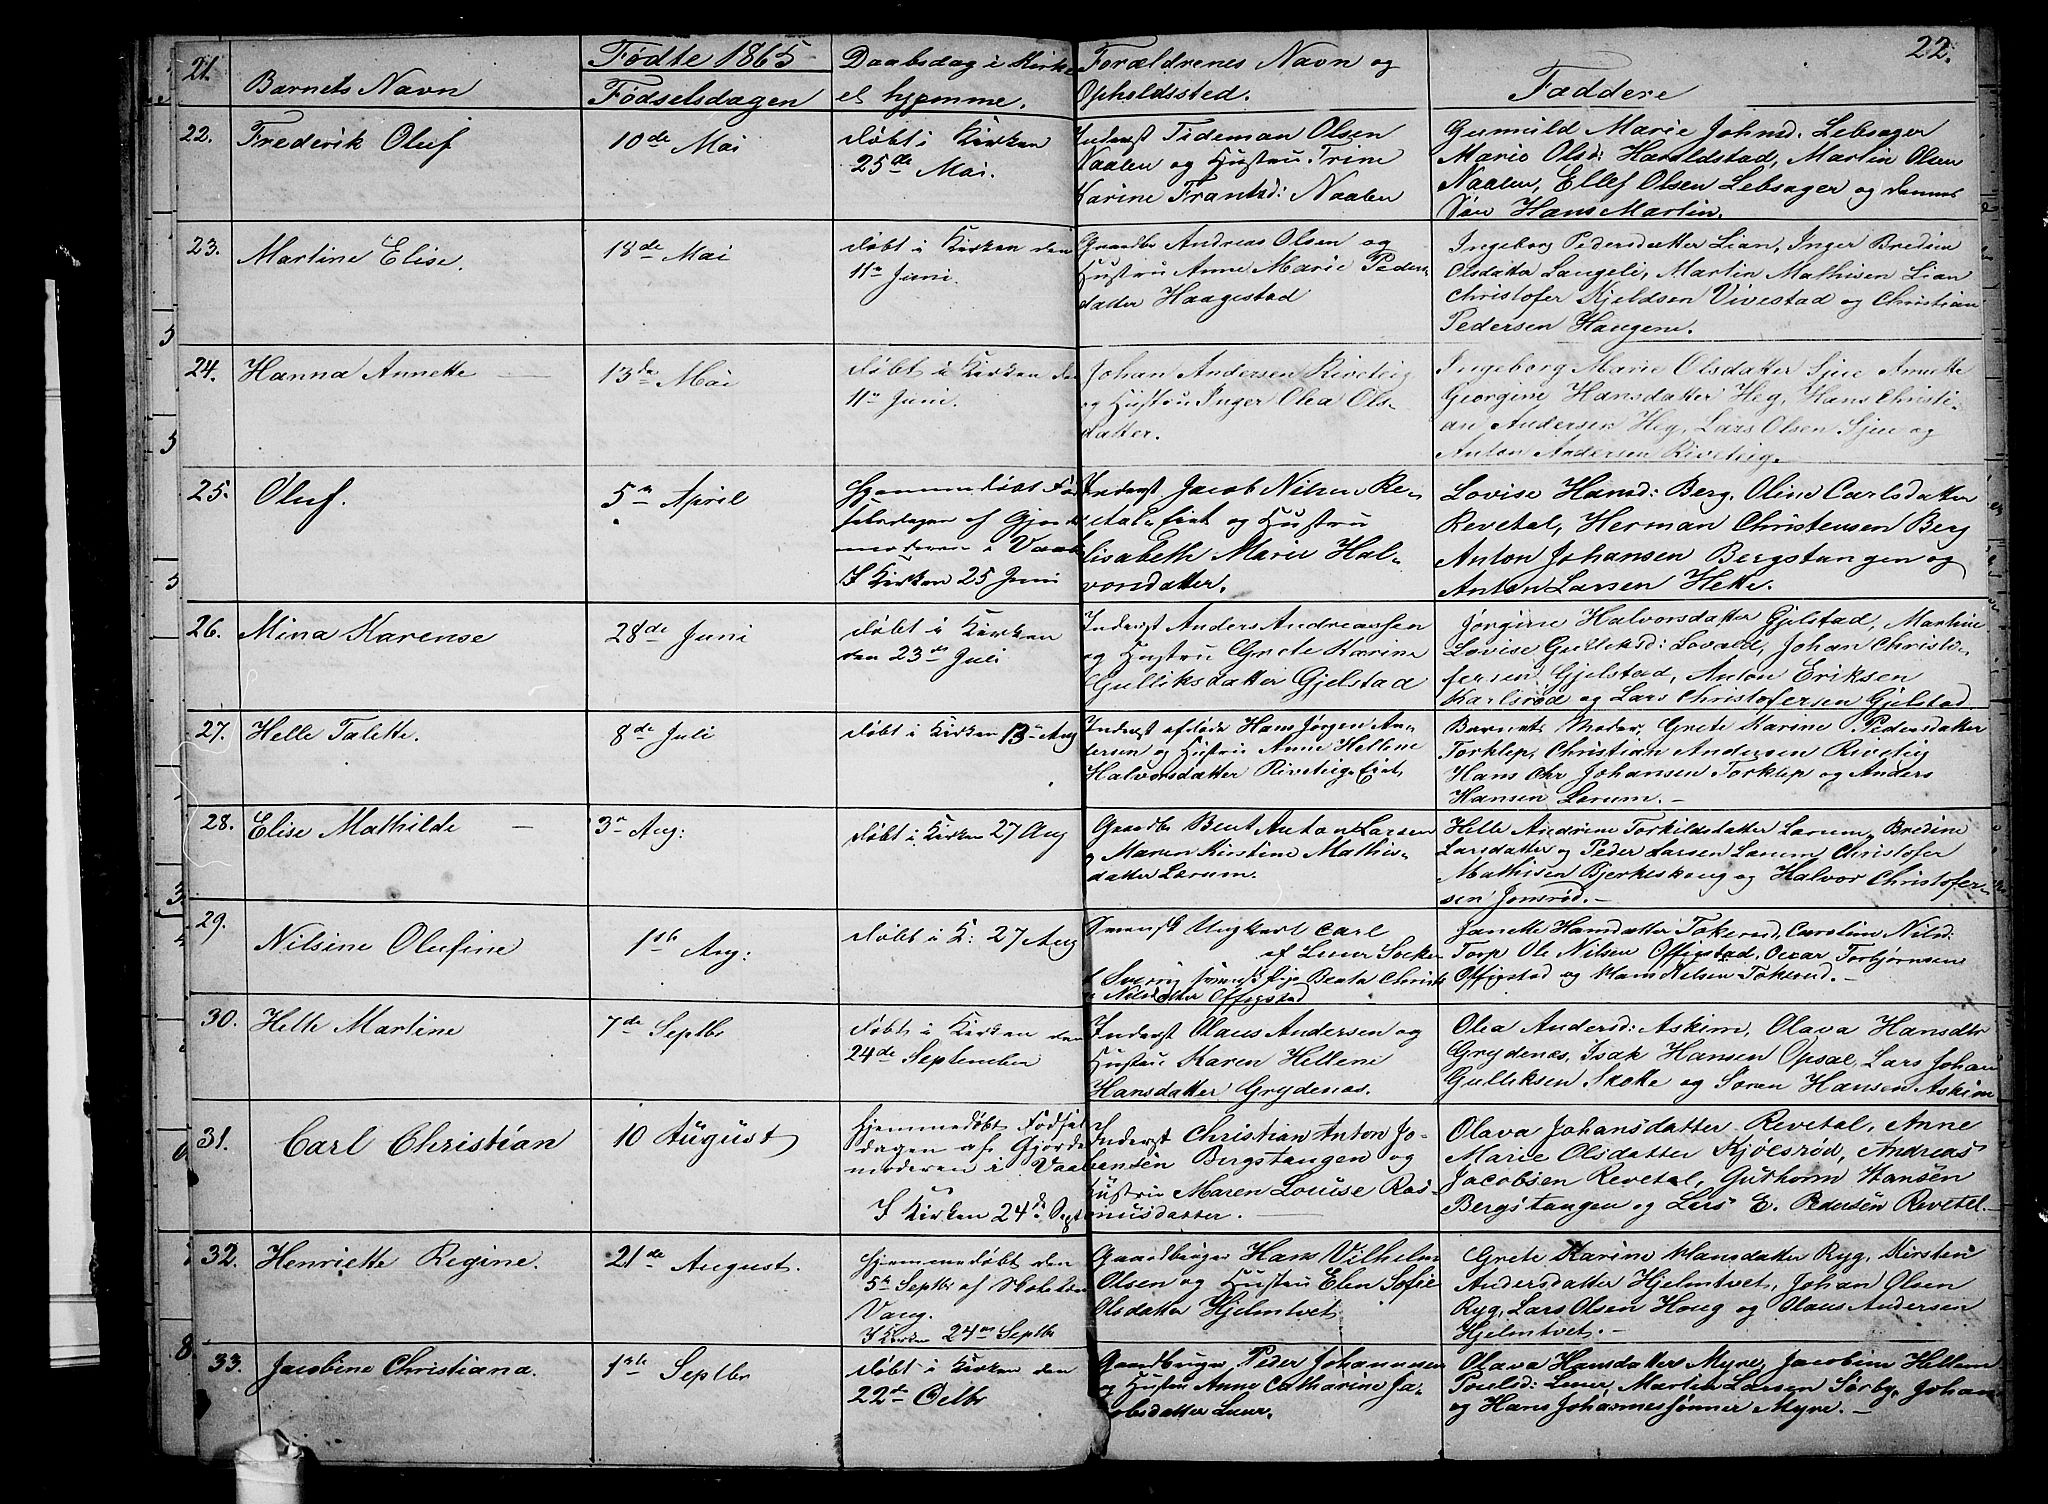 21.
Barnets Navn
Fødte 1865
Fødselsdagen
Daabsdag i Kirke
el hjemme.
Forældrenes Navn og
Opholdssted.
Faddere
22.
22. Frederik Oluf
10de Mai
døbt i Kirken
25de Mai.
Inderst Tideman Olsen
Naalen og Hustru Trine
Karine Frantsd: Naalen
Gunnild Marie Johnsd. Lebsager
Marie Olsd: Haroldstad, Martin Olsen
Naalen, Ellef Olsen Lebsager og dennes
Søn Hans Martin.
23. Martine Elise.
18de Mai
døbt i Kirken den
11te Juni.
Gaardbr Andreas Olsen og
Hustru Anne Marie Peders
datter Haagestad
Ingeborg Pedersdatter Lian, Inger Bredine
Olsdatter Langeli, Martin Mathisen Lian
Christofer Kjeldsen Vivestad og Christian
Pedersen Haugene.
24. Hanna Annette
13de Mai
døbt i Kirken den
11te Juni.
Johan Andersen Rivetrig
og Hustru Inger Olea Ols-
datter.
Ingeborg Marie Olsdatter Sjue Annette
Georgine Hansdatter Heg, Hans Christi-
an Andersen Heg, Lars Olsen Sjue og
Anton Andersen Rivetrig.
25. Oluf.
5te April
Hjemmedøbt Fød
selsdagen af Gjorde
moderen i Vaale
I Kirken 25 Juni
Inderst Jacob Nilsen Re-
vetal-eiet og Hustru
Elisabeth Marie Hal-
vorsdatter.
Lovise Hansd: Berg, Oline Carlsdatter
Revetal, Herman Christensen Berg
Anton Johansen Bergstangen og
Anton Larsen Hette.
26. Mina Karense
28de Juni
døbt i Kirken
den 23de Juli
Inderst Anders Andreassen
og Hustru Grete Karine
Gulliksdatter Gjelstad
Jørgine Halvorsdatter Gjelstad, Martine
Lovise Gulliksd: Lovald, Johan Christo-
fersen Gjelstad, Anton Eriksen
Karlsrød og Lars Christofersen Gjelstad
27. Helle Talette.
8de Juli
døbt i Kirken 13te Aug
Inderst afdøde Hans Jørgen An-
dersen og Hustru Anne Hellene
Halvorsdatter Rivetrig-Eiet
Barnets Moder, Grete Karine Pedersdatter
Torklep, Christian Andersen Rivetrig
Hans Chr Johansen Torklep og Anders
Hansen Lorum.-
28. Elise Mathilde
3te Aug:
døbt i Kirken 27 Aug
Gaardbr Bent Anton Larsen
og Maren Kirstine Mathis-
datter Lorum.
Helle Andrine Torkildsdatter Lorum, Bredine
Larsdatter og Peder Larsen Lorum Christofer
Mathisen Bjerkeskoug og Halvor Christofer-
sen Jonsrød.-
29. Nilsine Olufine
1ste Aug:
døbt i K: 27 Aug
Svensk Ungkarl Carl
og Pige Beata Christ
Nilsdatter Offigstad
Janette Hansdatter Tokerød, Carstine Nilsd:
Torp Ole Nilsen Offigstad, Oscar Torbjørnsen
Offigstad og Hans Nilsen Tokerød.-
30. Helle Martine
7de Septbr
døbt i Kirken den
24de September
Inderst Olaus Andersen og
Hustru Karen Hellene
Hansdatter Grydenæs.
Olea Andersd: Askim, Olava Hansdtr
Grydenæs, Isak Hansen Opsal, Lars Johan
Gulliksen Skotte og Søren Hansen Askim
31. Carl Christian
10 August
Hjemmedøbt Fødsels
dagen af Gjorde
moderen i Vaale
I Kirken 24de Sept
Inderst Christian Anton Jo-
hansen Bergstangen og
Hustru Maren Louise Ras-
musdatter.
Olava Johansdatter Revetal, Anne
Marie Olsdatter Kjølsrød, Andreas
Jacobsen Revetal, Guthorm Hansen
Bergstangen og Lars E. Pedersen Revetal.-
32. Henriette Regine.
21de August.
Hjemmedøbt den
5te Septbr af Skolelærer
Vang.
I Kirken 24de Septbr
Gaardbruger Hans Vilhelm
Olsen og Hustru Elen Sofie
Olsdatter Hjelmtvet
Grete Karine Hansdatter Ryg, Kirsten
Andersdatter Hjelmtvet, Johan Olsen
Ryg, Lars Olsen Houg og Olaus Andersen
Hjelmtvet.-
33. Jacobine Christiana.
1ste Septbr
døbt i Kirken den
22de Octbr
Gaardbruger Peder Johannesen
og Hustru Anne Catharine Ja-
cobsdatter Luur.
Olava Hansdatter Myre, Jacobine Hellene
Poulsd: Luur, Martin Larsen Sørby, Johan
og Hans Johannessønner Myre.-